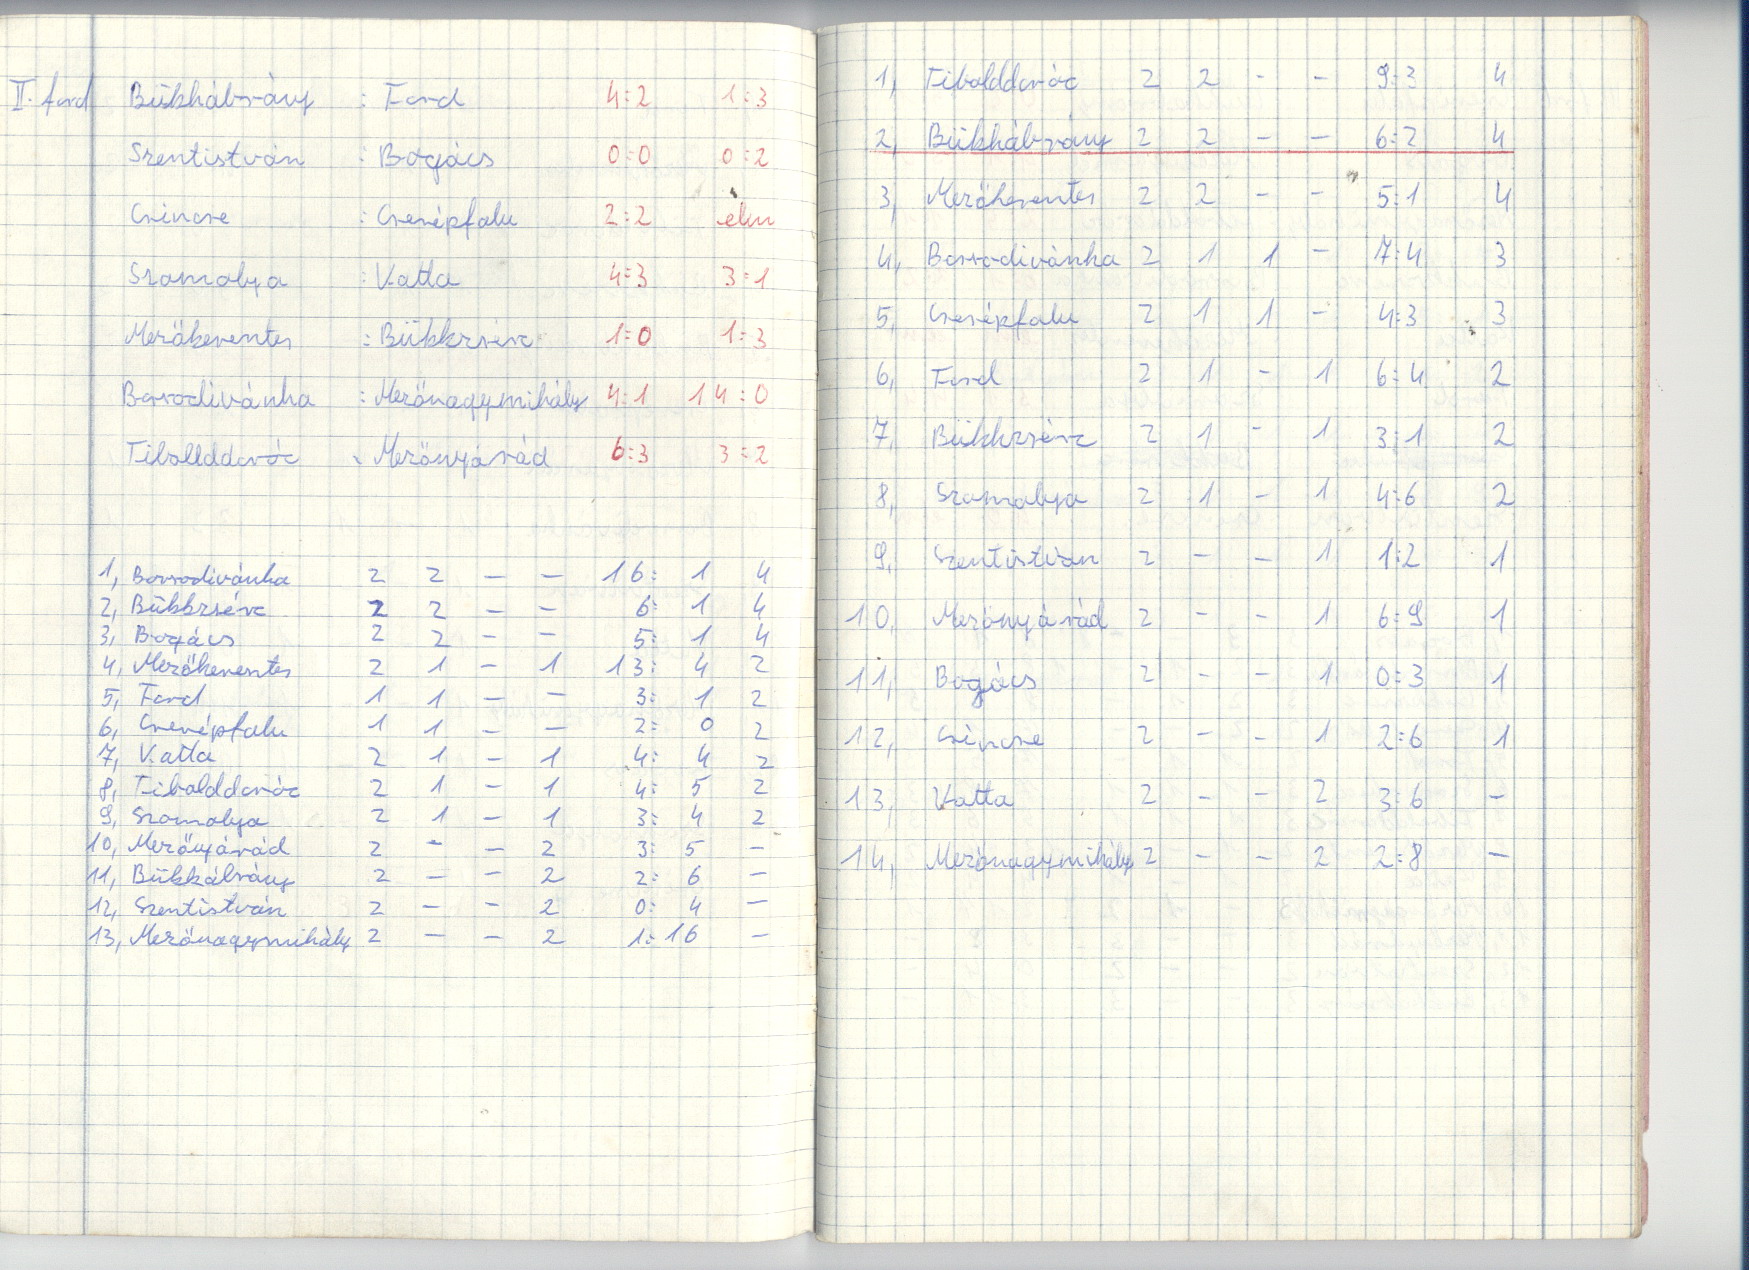 II. ford Bükkábrány : Fard 4:2 1:3
Szentistván : Bogács 0:0 0:2
Csincse : Cserépfalu 2:2 elm
Szomolya : Vatta 4:3 3:1
Mezőkeresztes : Bükkzsérc 1:0 1:3
Borsodivánka : Mezőnagymihály 4:1 14:0
Tibollddaróc : Mezőnyárád 6:3 3:2
1, Borsodivánka 2 2 – – 16: 1 4
2, Bükkzsérc 2 2 – – 6: 1 4
3, Bogács 2 2 – – 5: 1 4
4, Mezőkeresztes 2 1 – 1 13: 4 2
5, Fard 1 1 – – 3: 1 2
6, Cserépfalu 1 1 – – 2: 0 2
7, Vatta 2 1 – 1 4: 4 2
8, Tibolddaróc 2 1 – 1 4: 5 2
9, Szomolya 2 1 – 1 3: 4 2
10, Mezőnyárád 2 – – 2 3: 5 –
11, Bükkábrány 2 – – 2 2: 6 –
12, Szentistván 2 – – 2 0: 4 –
13, Mezőnagymihály 2 – – 2 1: 16 –
1, Tibolddaróc 2 2 – – 9:3 4
2, Bükkábrány 2 2 – – 6:2 4
3, Mezőkeresztes 2 2 – – 5:1 4
4, Borsodivánka 2 1 1 – 7:4 3
5, Cserépfalu 2 1 1 – 4:3 3
6, Fard 2 1 – 1 6:4 2
7, Bükkzsérc 2 1 – 1 3:1 2
8, Szomolya 2 1 – 1 4:6 2
9, Szentistván 2 – – 1 1:2 1
10, Mezőnyárád 2 – – 1 6:9 1
11, Bogács 2 – – 1 0:3 1
12, Csincse 2 – – 1 2:6 1
13, Vatta 2 – – 2 3:6 –
14, Mezőnagymihály 2 – – 2 2:8 –